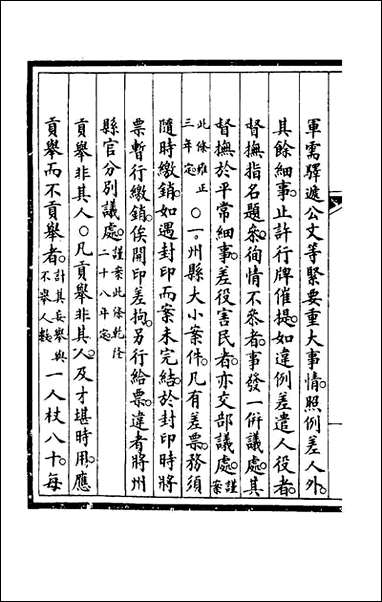 軍需驛遞公文等緊要重大事情。照例差人外。
其餘細事。止許行牌催提。如違例差遣人役者。
督撫指名題叅。徇情不叅者。事發一併議處。其
督撫於平常細事。差役害民者。亦交部議處。謹案
此條雍正三年定。○一。州縣大小案件。凡有差票。務須
隨時繳銷。如遇封印而案未完結。於封印時將
票暫行繳銷。俟開印差拘。另行給票。違者將州
縣官分別議處。謹案此條乾隆二十八年定
貢舉非其人○凡貢舉非其人。及才堪時用。應
貢舉而不貢舉者。計其妄舉與不舉人數一人杖八十。每